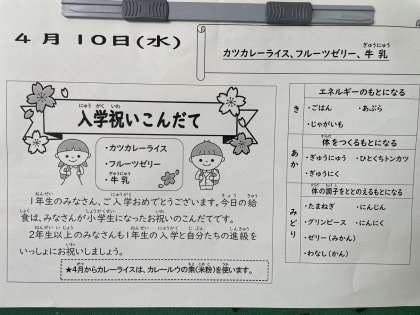 4月10日(水)
カツカレーライス、フルーツゼリー、牛乳
入学祝いこんだて
・カツカレーライス
・フルーツゼリー
・牛乳
1年生のみなさん、ご入学おめでとうございます。今日の給
食は、みなさんが小学生になったお祝いのこんだてです。
2年生以上のみなさんも1年生の入学と自分たちの進級を
いっしょにお祝いしましょう。
★4月からカレーライスは、カレールウの素(米粉)を使います。
き
エネルギーのもとになる
・ごはん ・あぶら
・じゃがいも
あか
体をつくるもとになる
・ぎゅうにゅう ・ひとくちトンカツ
・ぎゅうにく
みどり
体の調子をととのえるもとになる
・たまねぎ ・にんじん
・グリンピース ・にんにく
・ゼリー(みかん)
・わなし(かん)